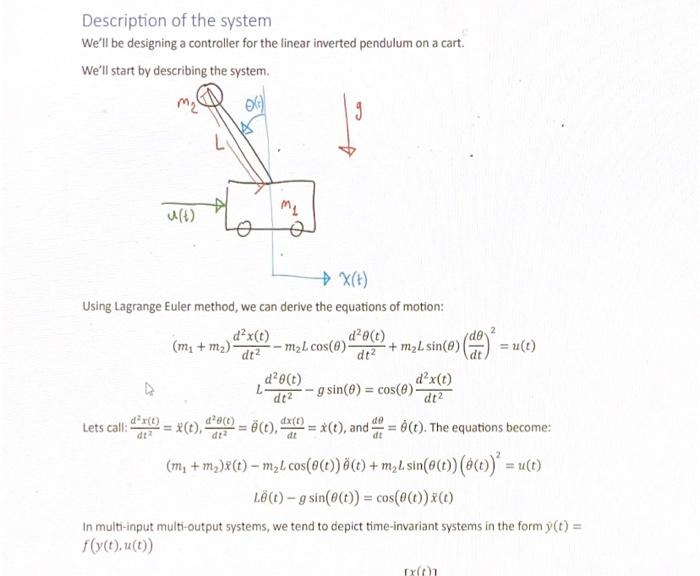 Description of the system
We'll be designing a controller for the linear inverted pendulum on a cart.
We'll start by describing the system.
m₂ θ(t) g
L
u(t) m₁
x(t)
Using Lagrange Euler method, we can derive the equations of motion:
(m₁ + m₂) d²x(t)/dt² − m₂L cos(θ) d²θ(t)/dt² + m₂L sin(θ) (dθ/dt)² = u(t)
L d²θ(t)/dt² − g sin(θ) = cos(θ) d²x(t)/dt²
Lets call: d²x(t)/dt² = ẍ(t), d²θ(t)/dt² = θ̈(t), dx(t)/dt = ẋ(t), and dθ/dt = θ̇(t). The equations become:
(m₁ + m₂)ẍ(t) − m₂L cos(θ(t)) θ̈(t) + m₂L sin(θ(t)) (θ̇(t))² = u(t)
Lθ̈(t) − g sin(θ(t)) = cos(θ(t)) ẍ(t)
In multi-input multi-output systems, we tend to depict time-invariant systems in the form ẏ(t) =
f(y(t), u(t))
[x(t)]